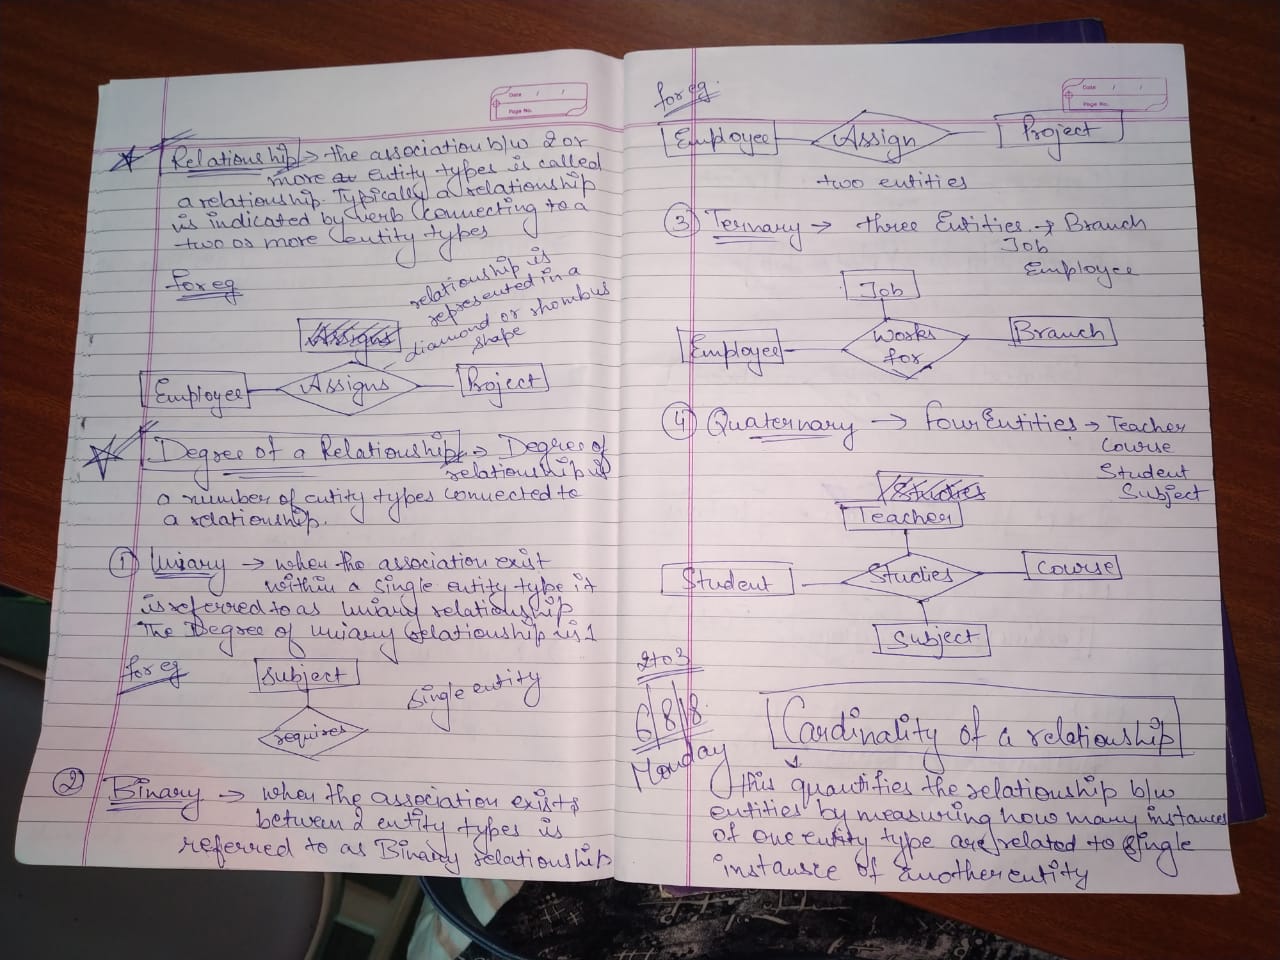 Date / /
Page No.
Relationship → the association b/w 2 or
more entity types is called
a relationship. Typically a relationship
is indicated by verb connecting to a
two or more entity types
for eg
relationship is
represented in a
diamond or rhombus
shape
Assigns
Employee Assigns Project
Degree of a Relationship → Degree of
relationship is
a number of entity types connected to
a relationship.
① Uniary → when the association exist
within a single entity type it
is referred to as Uniary relationship
The Degree of uniary relationship is 1
for eg Subject single entity
requires
② Binary → when the association exists
between 2 entity types is
referred to as Binary relationship
Date / /
Page No.
for eg.
Employee Assign Project
two entities
③ Ternary → three Entities → Branch
Job
Employee
Job
Employee Works for Branch
④ Quaternary → four Entities → Teacher
Course
Student
Subject
Studies
Teacher
Student Studies Course
Subject
2 to 3
6/8/18
Monday
Cardinality of a relationship
this quantifies the relationship b/w
entities by measuring how many instances
of one entity type are related to single
instance of another entity